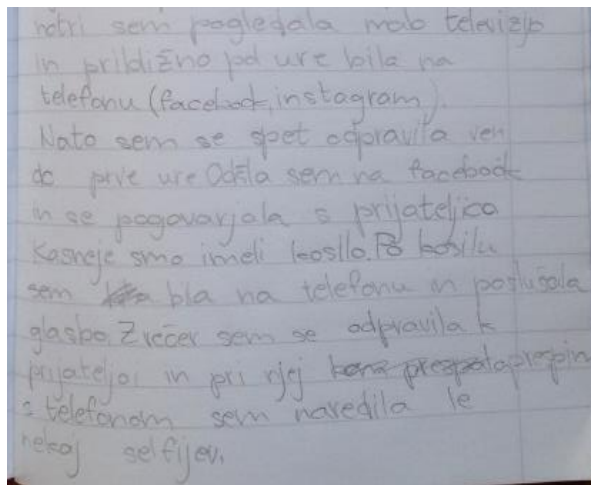 notri sem pogledala malo televizijo
in približno pol ure bila na
telefonu (facebook, instagram).
Nato sem se spet odpravila ven
do prve ure. Odšla sem na facebook
in se pogovarjala s prijateljico
Kasneje smo imeli kosilo. Po kosilu
sem bla na telefonu in poslušala
glasbo. Zvečer sem se odpravila k
prijateljoi in pri njej prespala
s telefonom sem naredila le
nekaj selfijev.